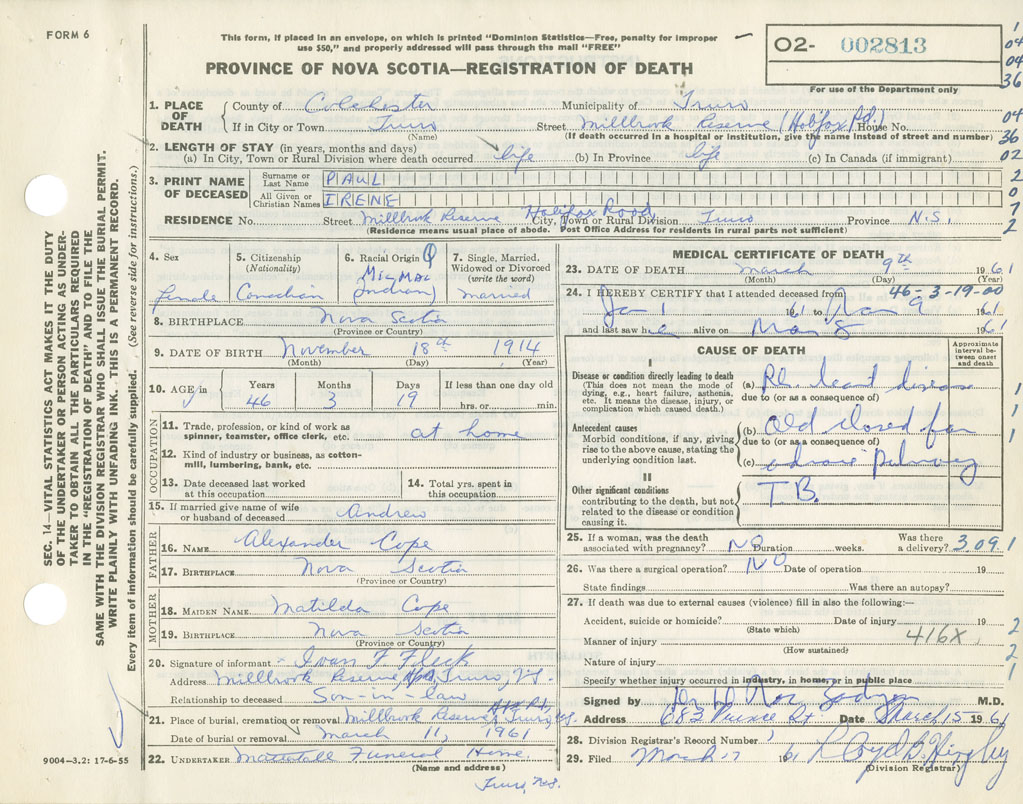 FORM 6
This form, if placed in an envelope, on which is printed "Dominion Statistics—Free, penalty for improper
use $50," and properly addressed will pass through the mail "FREE"
PROVINCE OF NOVA SCOTIA—REGISTRATION OF DEATH
02- 002813
For use of the Department only
1
04
04
36
04
36
02
2
0
7
2
1. PLACE OF DEATH
County of Colchester Municipality of Truro
If in City or Town Truro Street Millbrook Reserve (Halifax Rd.) House No.
(Name) (If death occurred in a hospital or institution, give the name instead of street and number)
2. LENGTH OF STAY (in years, months and days)
(a) In City, Town or Rural Division where death occurred life (b) In Province life (c) In Canada (if immigrant)
3. PRINT NAME OF DECEASED
Surname or Last Name PAUL
All Given or Christian Names IRENE
RESIDENCE No. Street Millbrook Reserve Halifax Road, City, Town or Rural Division Truro Province N.S.
(Residence means usual place of abode. Post Office Address for residents in rural parts not sufficient)
4. Sex
female
5. Citizenship (Nationality)
Canadian
6. Racial Origin
Micmac
(Indian)
7. Single, Married, Widowed or Divorced (write the word)
married
8. BIRTHPLACE Nova Scotia
(Province or Country)
9. DATE OF BIRTH November 18th 1914
(Month) (Day) (Year)
10. AGE in Years 46 Months 3 Days 19 If less than one day old
hrs. or min.
OCCUPATION
11. Trade, profession, or kind of work as
spinner, teamster, office clerk, etc. at home
12. Kind of industry or business, as cotton-
mill, lumbering, bank, etc.
13. Date deceased last worked
at this occupation
14. Total yrs. spent in
this occupation
15. If married give name of wife
or husband of deceased Andrew
FATHER
16. NAME Alexander Cope
17. BIRTHPLACE Nova Scotia
(Province or Country)
MOTHER
18. MAIDEN NAME Matilda Cope
19. BIRTHPLACE Nova Scotia
(Province or Country)
20. Signature of informant Ivan F Fleck
Address Millbrook Reserve, Truro, NS.
Relationship to deceased Son-in-law
21. Place of burial, cremation or removal Millbrook Reserve, Truro, NS.
Date of burial or removal March 11, 1961
22. UNDERTAKER Mattatall Funeral Home
(Name and address)
Truro, N.S.
MEDICAL CERTIFICATE OF DEATH
23. DATE OF DEATH March 9th 1961
(Month) (Day) (Year)
46-3-19-00
24. I HEREBY CERTIFY that I attended deceased from
Jan 1 1961 to Mar 9 1961
and last saw her alive on Mar 8 1961
CAUSE OF DEATH
Approximate interval between onset and death
I
Disease or condition directly leading to death
(This does not mean the mode of
dying, e.g., heart failure, asthenia,
etc. It means the disease, injury, or
complication which caused death.)
(a) Rh. heart disease
due to (or as a consequence of)
Antecedent causes
Morbid conditions, if any, giving
rise to the above cause, stating the
underlying condition last.
(b) Old closed far
due to (or as a consequence of)
(c) advanced Pulmonary
II
Other significant conditions
contributing to the death, but not
related to the disease or condition
causing it.
T B.
1
1
1
1
25. If a woman, was the death
associated with pregnancy? NO Duration weeks. Was there
a delivery? 3.09 1
26. Was there a surgical operation? NO Date of operation 19
State findings Was there an autopsy?
27. If death was due to external causes (violence) fill in also the following:—
Accident, suicide or homicide? Date of injury 19 2
(State which)
Manner of injury 416X
(How sustained)
Nature of injury 2
Specify whether injury occurred in industry, in home, or in public place 1
Signed by M.D.
Address 683 Prince St. Date March 15 1961
28. Division Registrar's Record Number
29. Filed March 17 1961
(Division Registrar)
SEC. 14—VITAL STATISTICS ACT MAKES IT THE DUTY
OF THE UNDERTAKER OR PERSON ACTING AS UNDER-
TAKER TO OBTAIN ALL THE PARTICULARS REQUIRED
IN THE "REGISTRATION OF DEATH" AND TO FILE THE
SAME WITH THE DIVISION REGISTRAR WHO SHALL ISSUE THE BURIAL PERMIT.
WRITE PLAINLY WITH UNFADING INK. THIS IS A PERMANENT RECORD.
Every item of information should be carefully supplied. (See reverse side for instructions.)
9004—3.2: 17-6-55